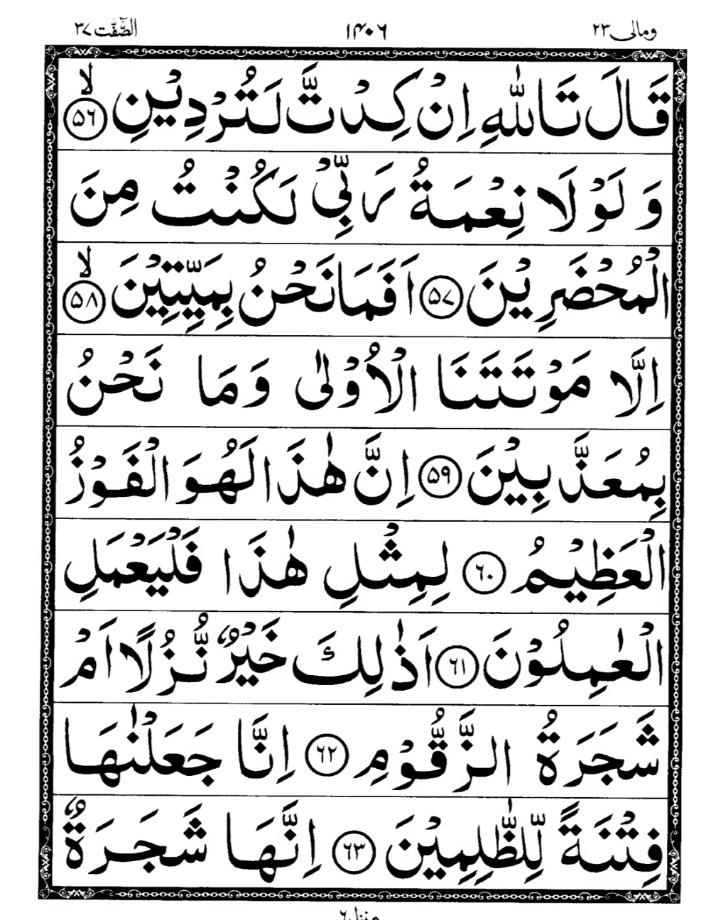 الصّٰفّٰت ٣٧ ١٤٠٦ ومالی ٢٣
قَالَ تَاللّٰهِ اِنْ كِدْتَّ لَتُرْدِيْنِ ۙ﴿۵۶﴾
وَ لَوْ لَا نِعْمَةُ رَبِّيْ لَكُنْتُ مِنَ
الْمُحْضَرِيْنَ ﴿۵۷﴾ اَفَمَا نَحْنُ بِمَيِّتِيْنَ ۙ﴿۵۸﴾
اِلَّا مَوْتَتَنَا الْاُوْلٰى وَ مَا نَحْنُ
بِمُعَذَّبِيْنَ ﴿۵۹﴾ اِنَّ هٰذَا لَهُوَ الْفَوْزُ
الْعَظِيْمُ ﴿۶۰﴾ لِمِثْلِ هٰذَا فَلْيَعْمَلِ
الْعٰمِلُوْنَ ﴿۶۱﴾ اَذٰلِكَ خَيْرٌ نُّزُلًا اَمْ
شَجَرَةُ الزَّقُّوْمِ ﴿۶۲﴾ اِنَّا جَعَلْنٰهَا
فِتْنَةً لِّلظّٰلِمِيْنَ ﴿۶۳﴾ اِنَّهَا شَجَرَةٌ
منزل ٦